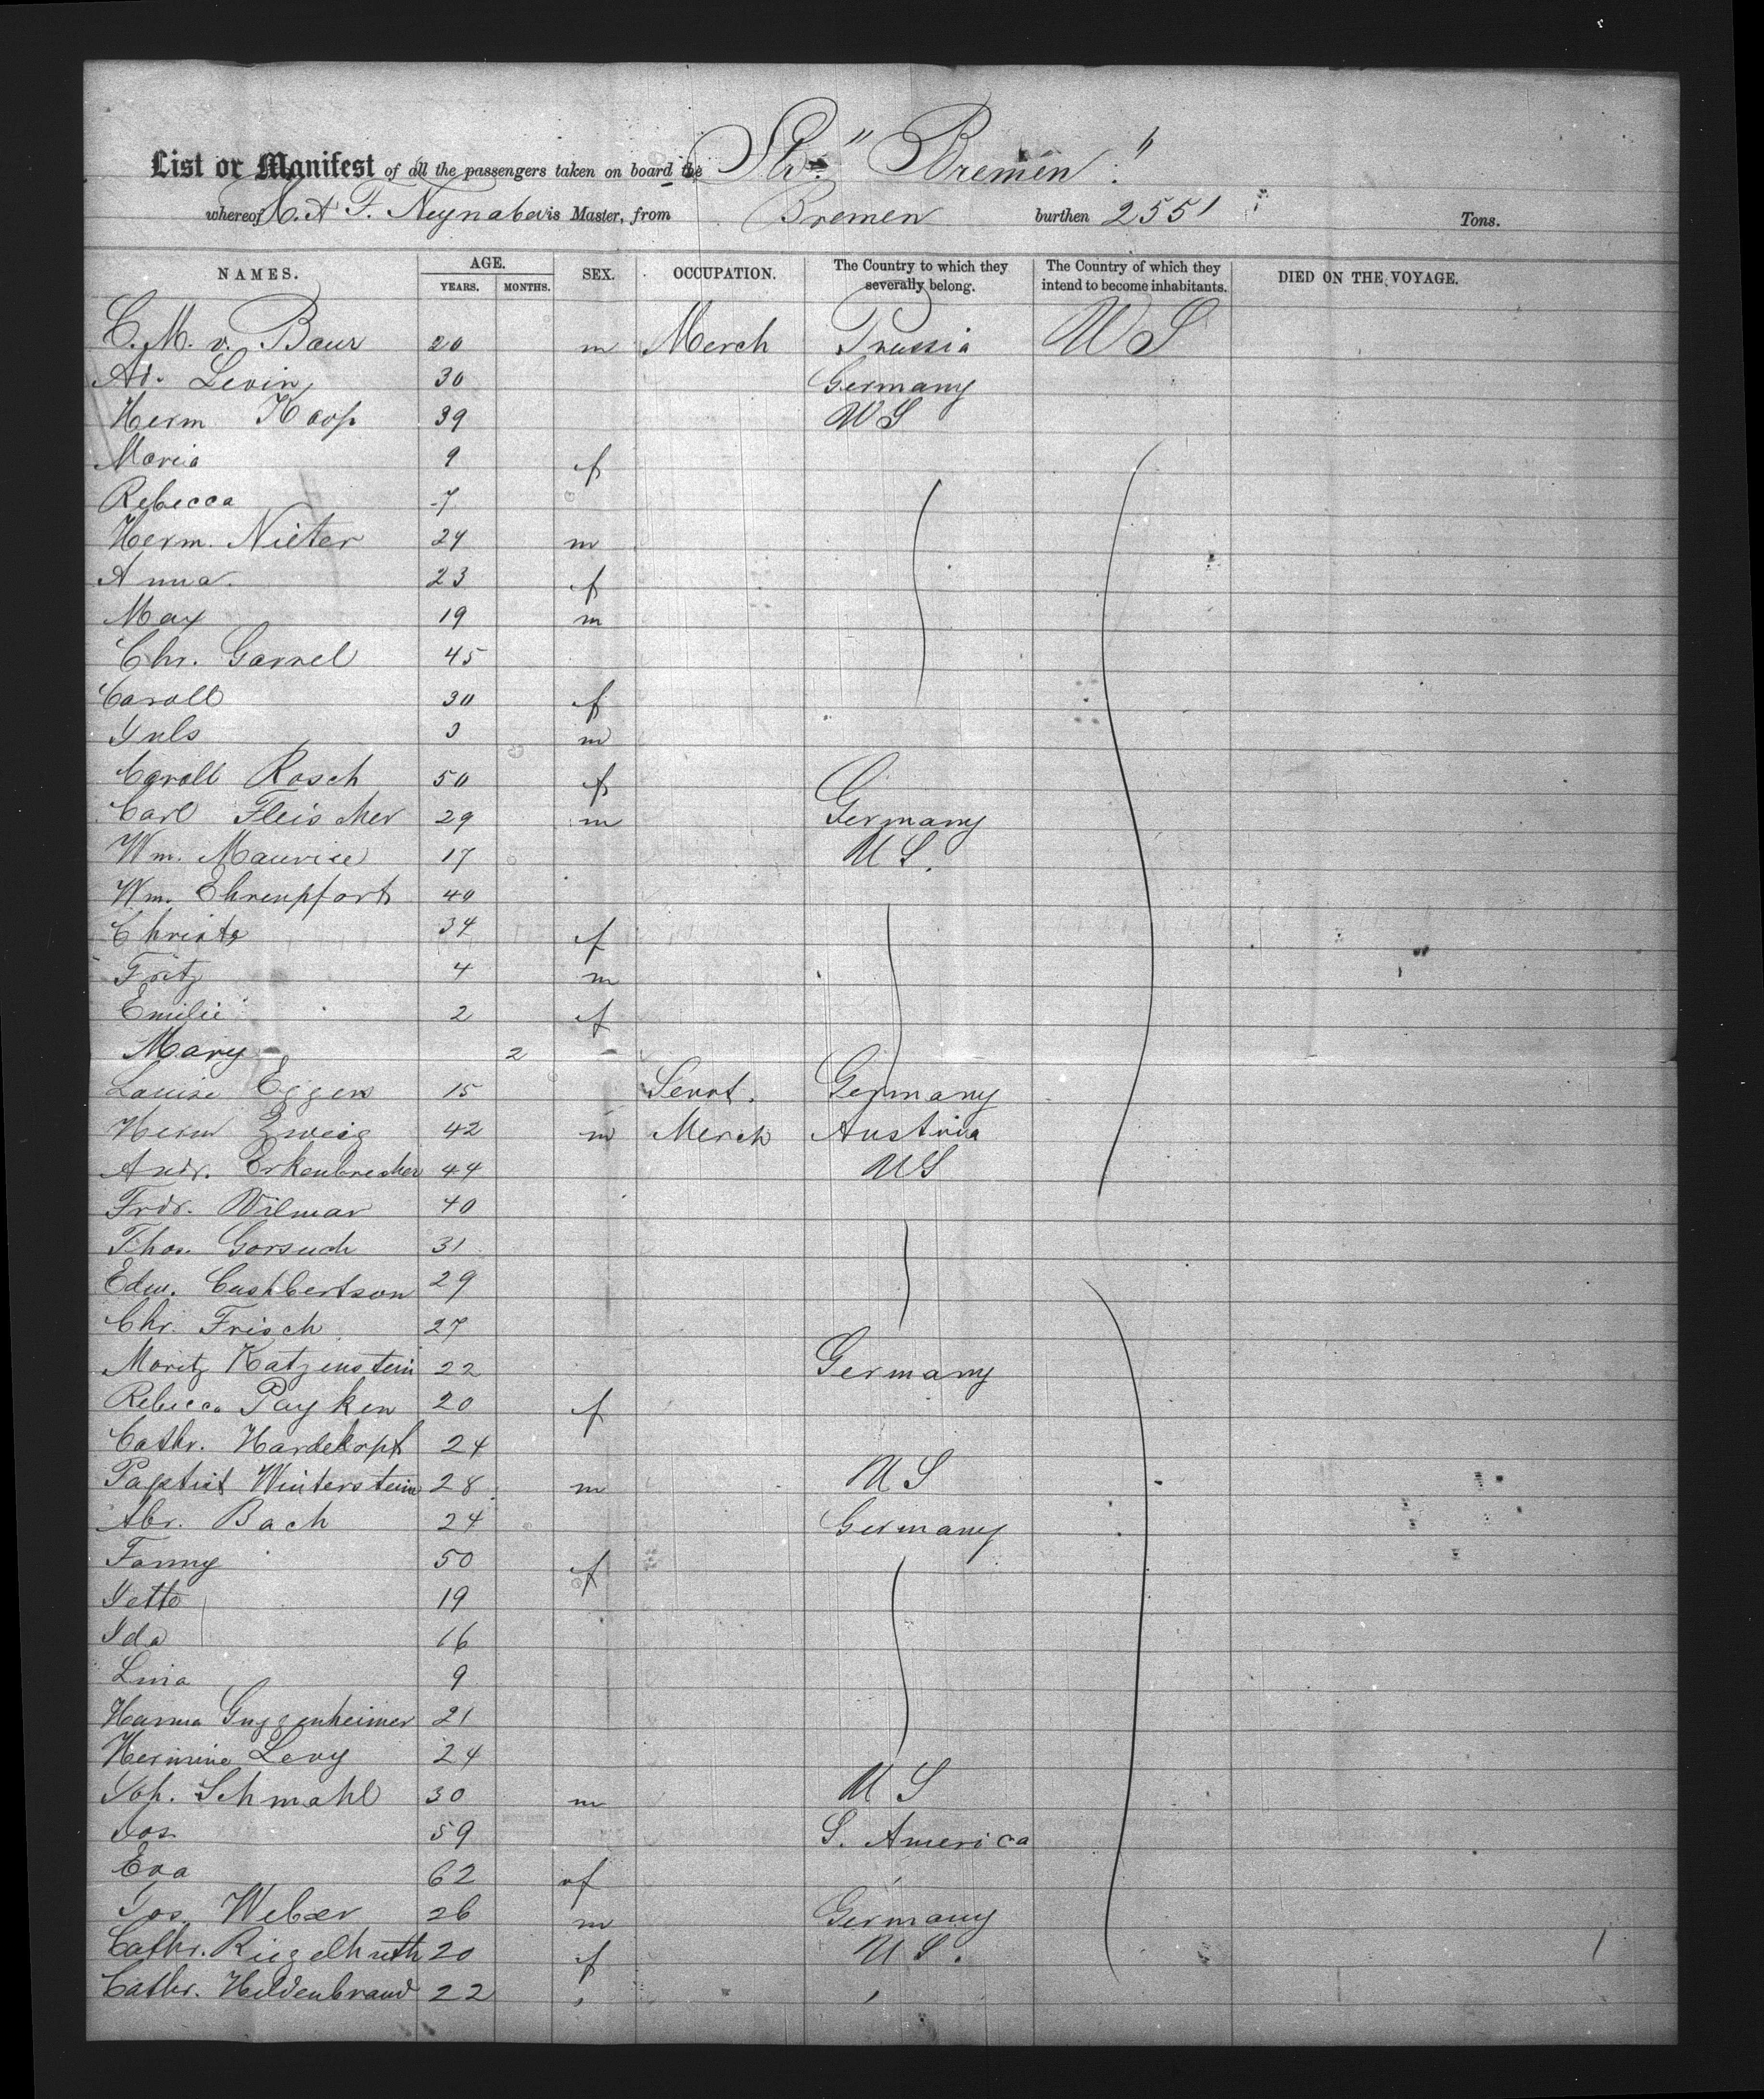 List or Manifest of all the passengers taken on board the Str. "Bremen."
whereof H. A. F. Neynaber is Master, from Bremen burthen 2551 Tons.
NAMES. AGE. YEARS. MONTHS. SEX. OCCUPATION. The Country to which they severally belong. The Country of which they intend to become inhabitants. DIED ON THE VOYAGE.
C. M. v. Baur 20 m Merch Prussia US
Ad. Levin 30 Germany
Herm Koop 39 US
Maria 9 f
Rebecca 7
Herm. Nieter 24 m
Anna. 23 f
Max 19 m
Chr. Garrel 45
Caroll 30 f
Juls 3 m
Caroll Rosch 50 f
Carl Fleischer 29 m Germany
Wm. Maurice 17 US.
Wm. Ehrenpfort 40
Christe 34 f
Fritz 4 m
Emilie 2 f
Mary 2 -
Louise Eggers 15 Servt. Germany
Herm Zweig 42 m Merch Austria
Andr. Erkenbrecher 44 US
Frdr. Wilmar 40
Thos. Gorsuch 31
Edw. Cushbertson 29
Chr. Frisch 27
Moritz Katzenstein 22 Germany
Rebecca Payken 20 f
Cathr. Hardekopf 24
Paptist Winterstein 28 m US
Abr. Bach 24 Germany
Fanny 50 f
Jette 19
Ida 16
Lina 9
Hanna Guggenheimer 21
Hermine Levy 24
Joh. Schmahl 30 m US
Jos. 59 S. America
Eva 62 f
Jos. Weber 26 m Germany
Cathr. Riegelhuth 20 f US.
Cathr. Heldenbrand 22 , ,